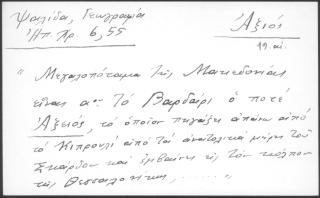 Ψαλίδα, Γεωγραφία
Ἠπ. Χρ. 6, 55
Ἀξιός
19. αἰ.
"Μεγαλοπόταμα τῆς Μακεδονίας
εἶναι α<sup>ον</sup> τὸ Βαρδάρι ὁ ποτέ
Ἀξειός, τὸ ὁποῖον πηγάζει ἀπάνω ἀπό
τὸ Κιπρουλί ἀπό τὰ ἀνατολικά μέρη τοῦ
Σκάρδου καὶ ἐμβαίνει εἰς τὸν κόλπον
τῆς Θεσσαλονίκης, ......"